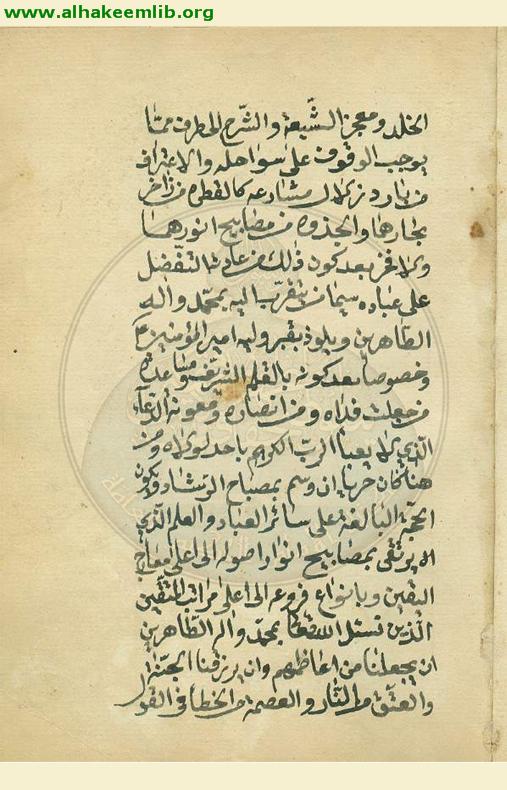 www.alhakeemlib.org
الخلد ومعجز الشّيعة والشّرح المطرف ممّا
يوجب الوقوف على سواحله والاغتراف
من بارد زلال مشارعه كالقطرة من زاخر
بحارهما والجذوة من مصابيح انوارهما
ولا فخر بعد كون ذلك من عادته التّفضّل
على عباده سيما من يتقرب اليه بمحمّد وآله
الطّاهرين ويلوذ بقبر وليه امير المؤمنين ع
وخصوصا بعد كونه بالقلم الشريف ومساعدة
من جعلت فداه ومن انصاره ومعونة الدّعاء
الّذي لا يعبأ الربّ الكريم باحد لولاه ومن
هنا كان حريا ان وسم بمصباح الرّشاد ويكون
الحجّة البالغة على سائر العباد والعلم الّذي
يرتقى بمصابيح انوار اصوله الى اعلى معارج
اليقين وبانواع فروعه الى اعلى مراتب المتّقين
الّذين نسئل الله تعالى بمحمّد وآله الطّاهرين
ان يجعلنا من اعاظمهم وان يرزقنا الجنّة
والعتق من النّار والعصمة من الخطأ في القول